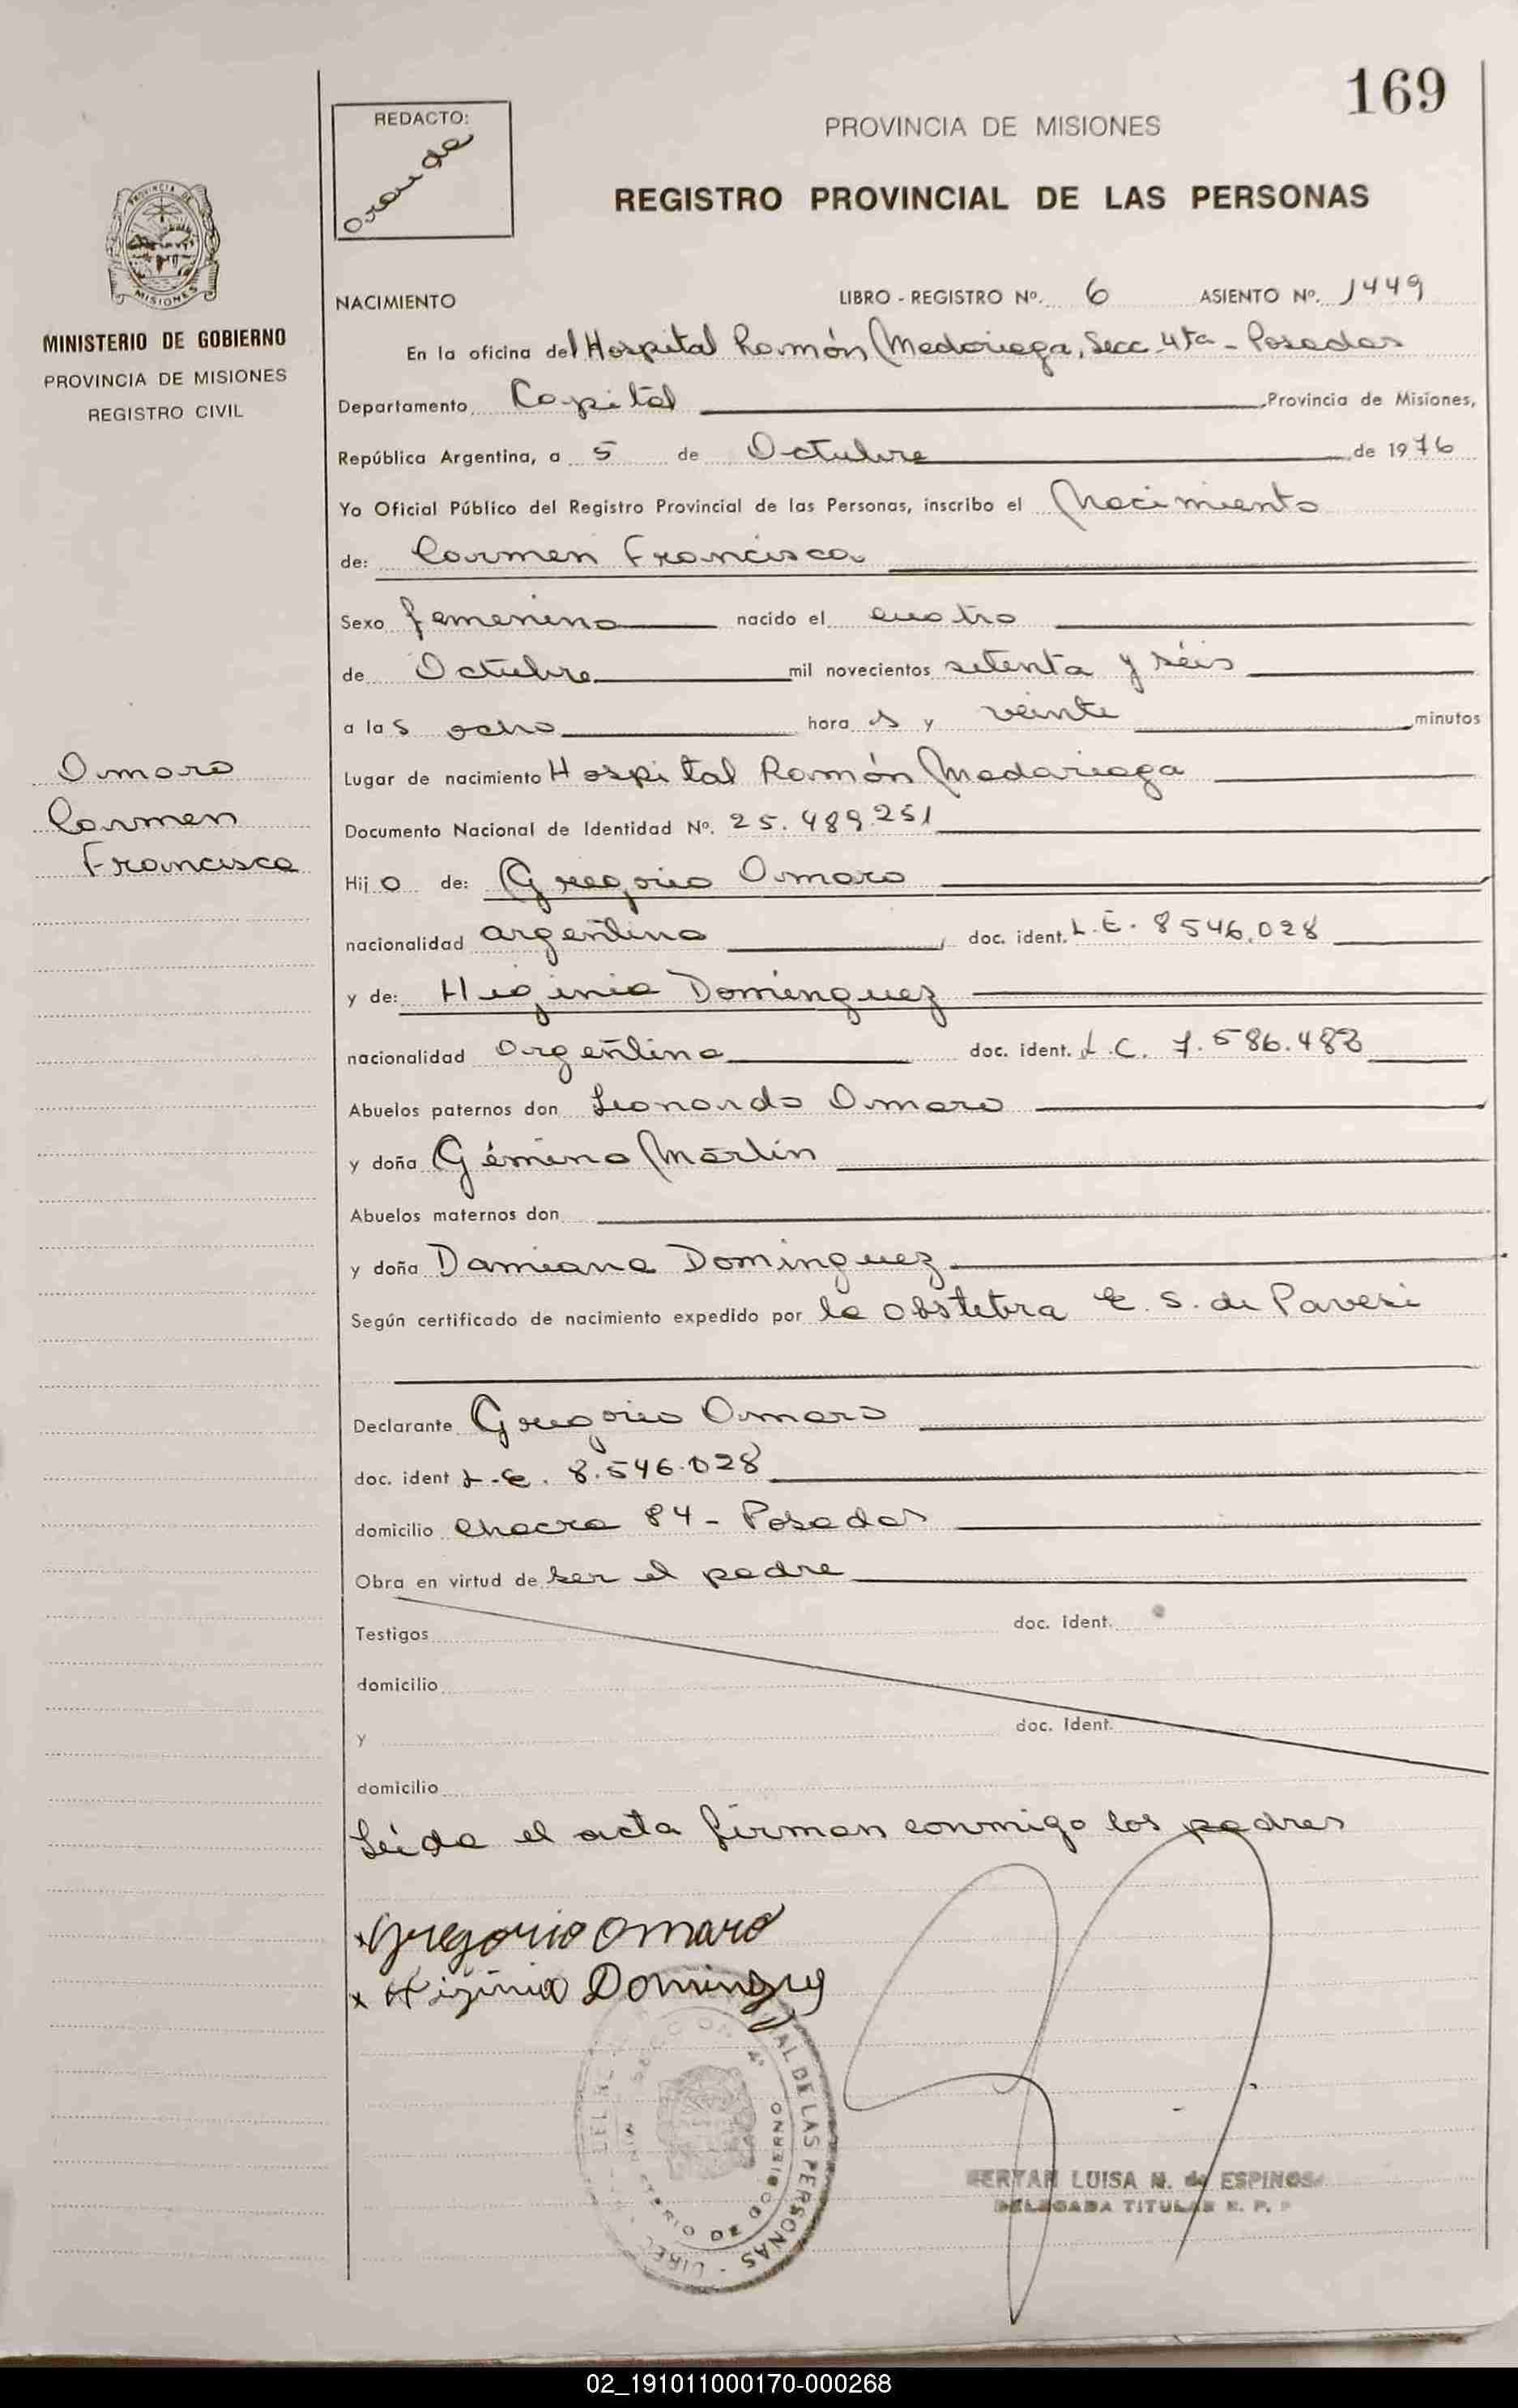 169
REDACTO:
PROVINCIA DE MISIONES
REGISTRO PROVINCIAL DE LAS PERSONAS
PROVINCIA DE
MISIONES
MINISTERIO DE GOBIERNO
PROVINCIA DE MISIONES
REGISTRO CIVIL
NACIMIENTO LIBRO - REGISTRO Nº. 6 ASIENTO Nº. 1449
En la oficina del Hospital Ramón Madariaga, Secc. 4ta - Posadas
Departamento Capital Provincia de Misiones,
República Argentina, a 5 de Octubre de 1976
Yo Oficial Público del Registro Provincial de las Personas, inscribo el Nacimiento
de: Carmen Francisca
Sexo femenino nacido el cuatro
de Octubre mil novecientos setenta y séis
a las ocho hora s y veinte minutos
Omaro
Carmen
Francisca
Lugar de nacimiento Hospital Ramón Madariaga
Documento Nacional de Identidad Nº. 25.489.251
Hij a de: Gregorio Omaro
nacionalidad argentino doc. ident. L.E. 8546.028
y de: Higinia Dominguez
nacionalidad argentina doc. ident. L.C. 7.586.483
Abuelos paternos don Leonardo Omaro
y doña Gémina Martín
Abuelos maternos don
y doña Damiana Dominguez
Según certificado de nacimiento expedido por la obstetra E. S. de Pavesi
Declarante Gregorio Omaro
doc. ident L.E. 8.546.028
domicilio chacra 84 - Posadas
Obra en virtud de ser el padre
Testigos doc. ident.
domicilio
y doc. ident.
domicilio
Leída el acta firman conmigo los padres
x Gregorio Omaro
x Higinia Dominguez
SECCION 4ª
AL DE LAS PERSONAS
MINISTERIO DE GOBIERNO
LUISA N. de ESPINOSA
DELEGADA TITULAR R. P. P
02_191011000170-000268